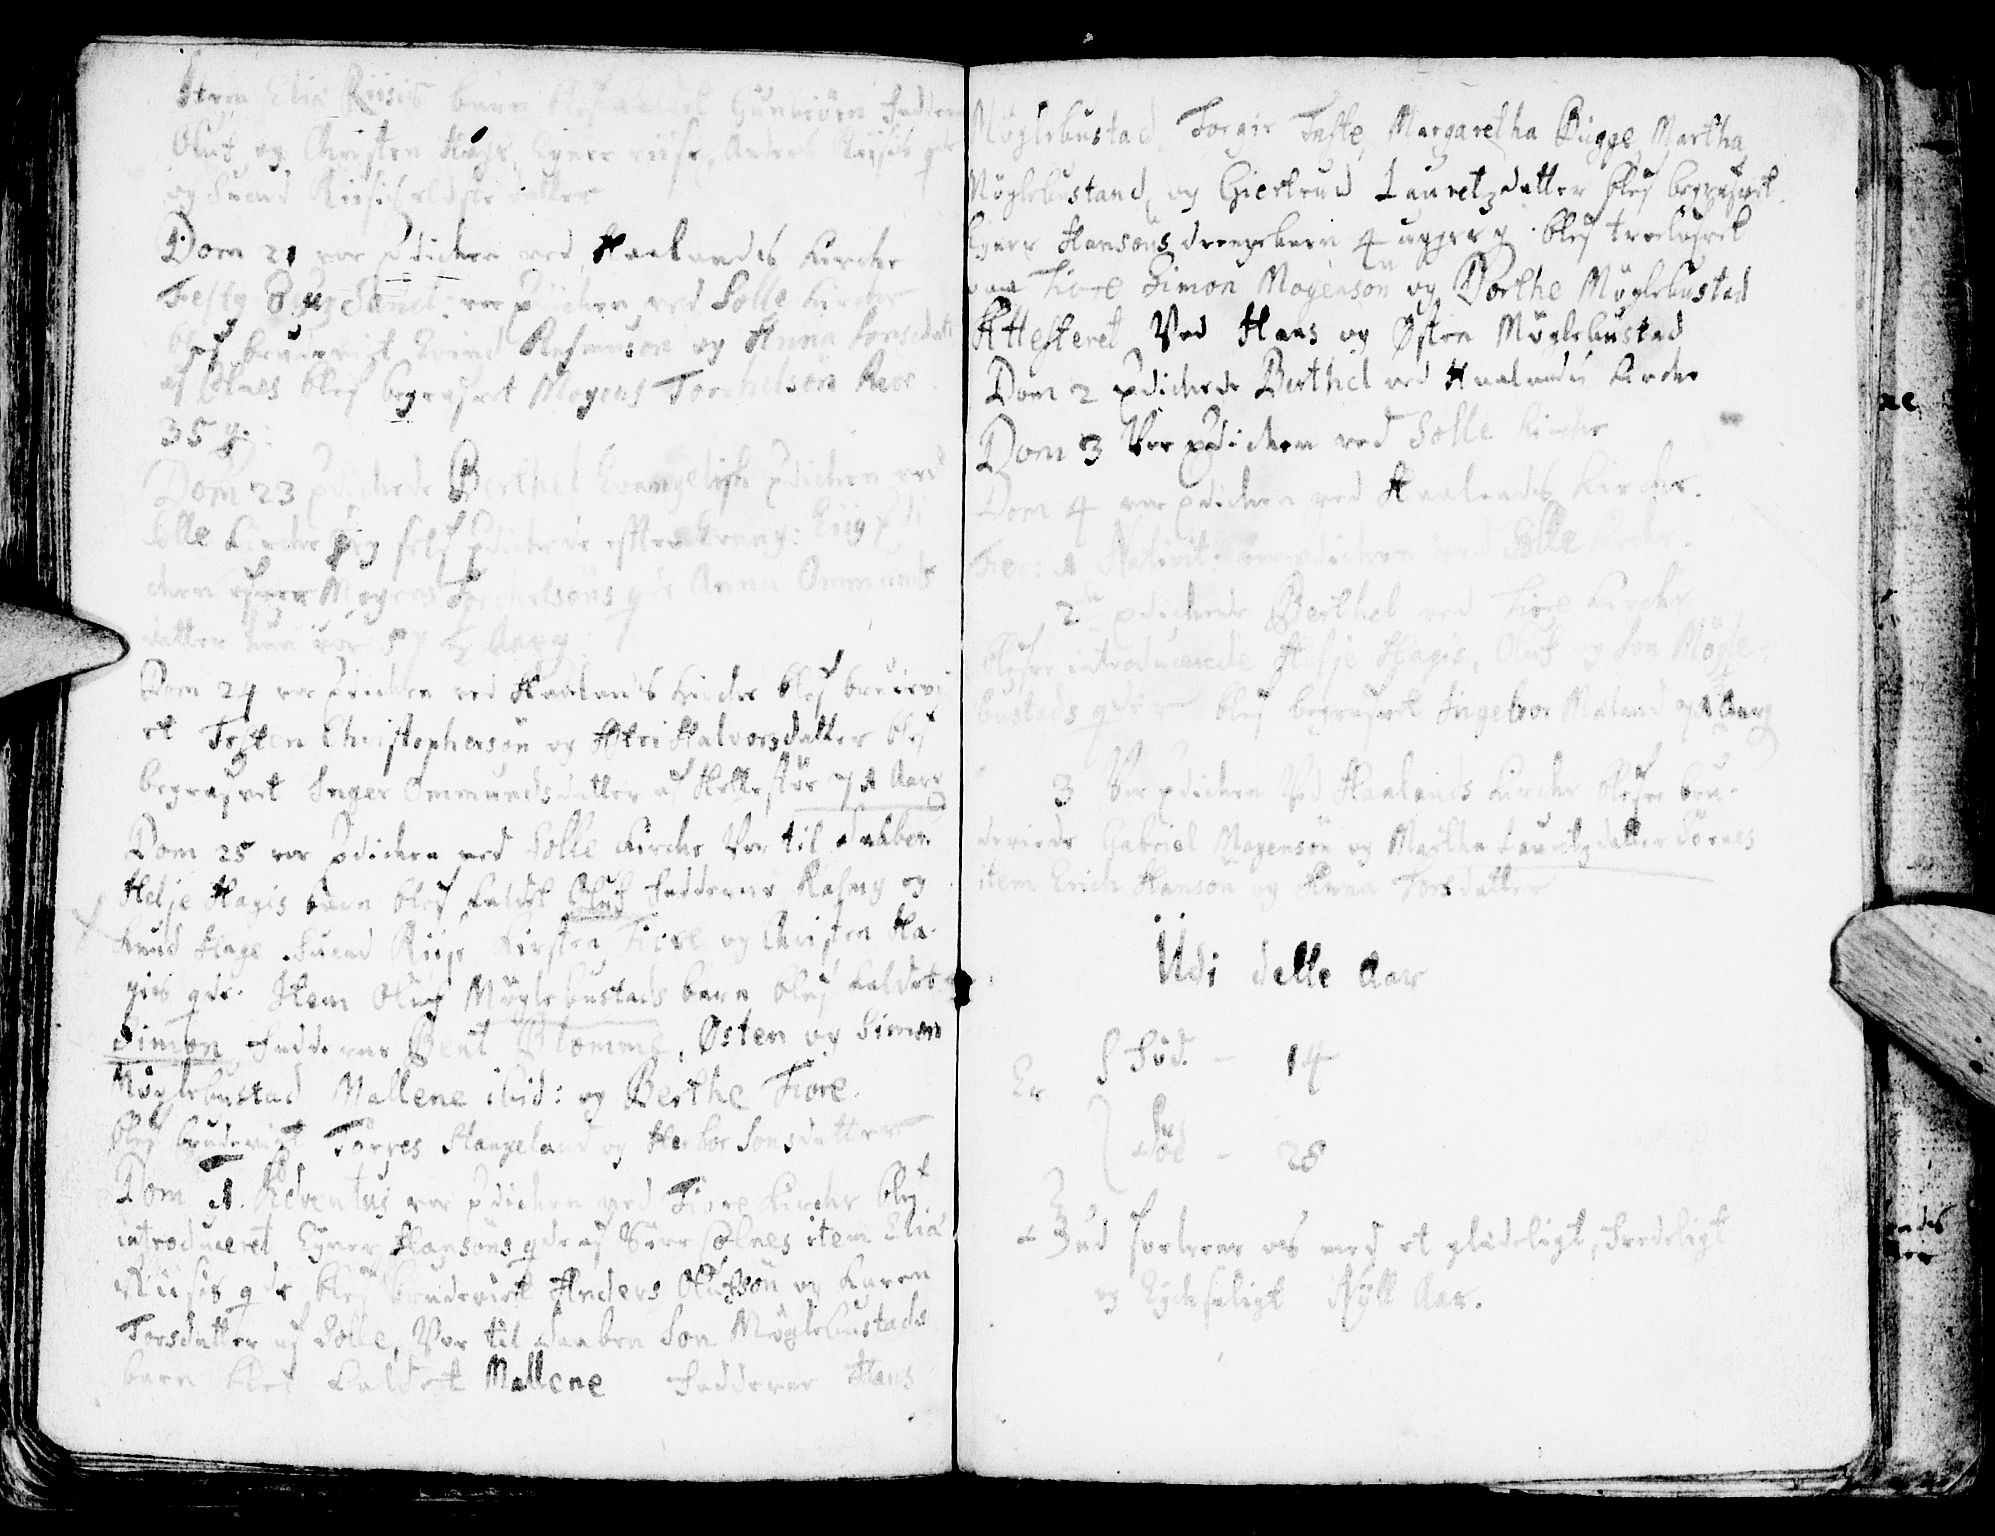 Item Elia Riisis barn blef kaldet Gunbiörn Faddere
Oluf og Christen Hage, Eyner riise, Anders Riisis qde
og Suend Riisis eldste datter
Dom 21 var Prædicken ved Haalands Kircke
Festo Omn: Sanct: var Prædicken ved Solle Kircke
blef brudeviet Rasmuson og Anna
af blef begrafvet Mogens Torchelsön
35
Dom 23 prædickede Berthel Evangelisk prædicken ved
Solle Kircke jeg self Prædickede effter
dicken ofver Mogens Torchelsöns qde Anna Ommunds
datter hun var 57 ½ Aar
Dom 24 var Prædicken ved Haalands Kircke blef brudevi
et Tosten Christophersön og Halvorsdatter blef
begrafvet Inger Ommundsdatter af Hellestöe 71 Aar
Dom 25 var Prædicken ved Solle Kircke Var til daaben
Helje Hagis barn blef kaldet Oluf Fadderne Rasmg og
Knud Hage, Suend Riise Kirsten Fiore og Christen Ha-
gis qde. Item Oluf Möglebustads barn blef kaldet
Simon Fadderne Bent Blomme, Østen og Simon
Möglebustad Mallene ibid: og Berthe Fiore.
blef brudeviet Törres Hangeland og Herbor Jonsdatter
Dom 1. Adventus var Prædicken ved Fiore Kircke blef
introduceret Eyner Hansöns qde af item Elia
Riisis qde blef brudeviet Anders Olufsön og Karen
Torsdatter af Solle, Var til daaben Jon Möglebustads
barn blef kaldet Mallene Fadderne Hans
Möglebustad, Torgir Taste, Margaretha Bugge, Martha
Möglebustand, og Giertrud Lauretzdatter blef begrafvet
Eyner Hansöns drengebarn 4 uger g. blef troelofvet
paa Fiore Simon Mogensön og Dorthe Möglebustad
Attesteret Ved Hans og Østen Möglebustad
Dom 2 prædickede Berthel ved Haalands Kircke
Dom 3 Var prædicken ved Solle Kircke
Dom 4 var prædicken ved Haalands Kircke.
Fer: 1 Nativit: var prædicken ved Solle Kircke.
2 prædickede Berthel ved Fiore Kircke
blefve introducerede Helje Hagis, Oluf og Jon Mögle-
bustads qder blef begrafvet Ingebor Maland 71 Aar
3 Var prædicken Ved Haalands Kircke blefve bru-
deviede Gabriel Mogensön og Martha Lauritzdatter Sörnes
item Erich Hansön og Anna Torsdatter
Udi dette Aar
Er
Föd. - 14
Död - 28
Gud forleene os med et glædeligt, fredeligt
og Lycksaligt Nytt Aar.